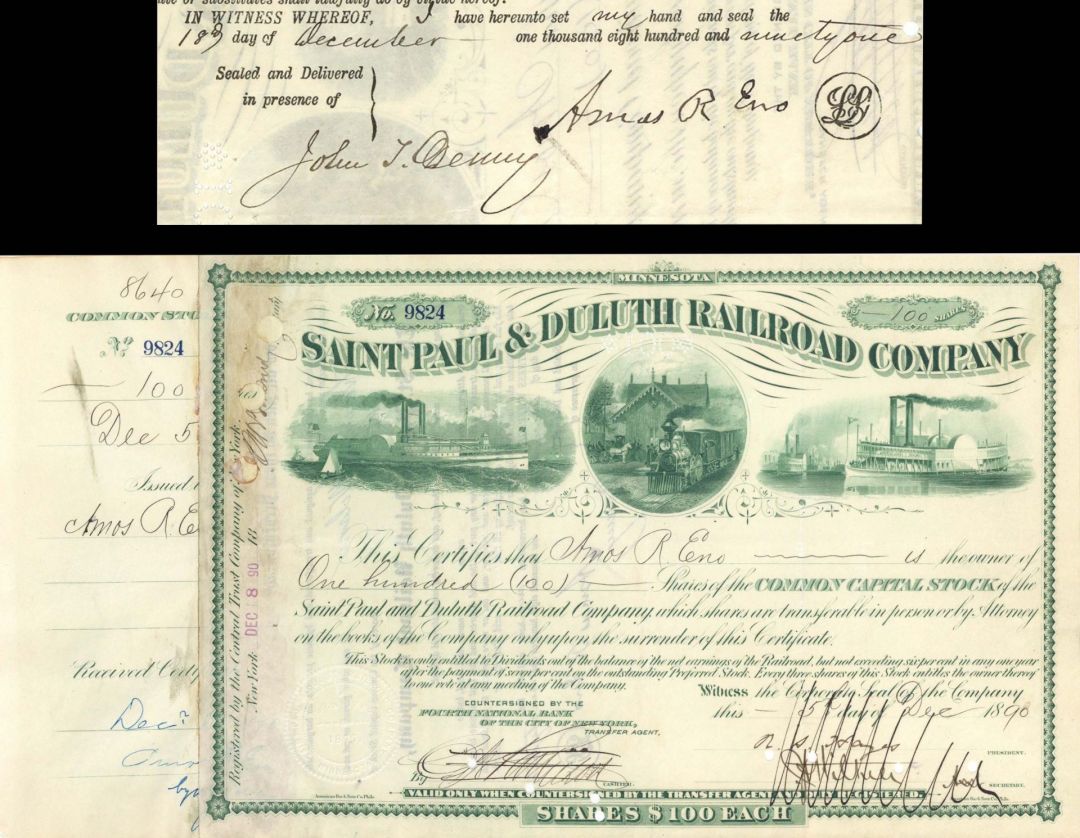 IN WITNESS WHEREOF, I have hereunto set my hand and seal the
18th day of December one thousand eight hundred and ninety one
Sealed and Delivered
in presence of
Amos R Eno
LS
John T. Denny
8640
COMMON STO
No 9824
100
Dec 5
Issued
Amos R. E
Received Certi
Dec
Registered by the Central Trust Company of New York.
New York DEC 8 90 18
MINNESOTA
No. 9824
100 SHARES
SAINT PAUL & DULUTH RAILROAD COMPANY
This Certifies that Amos R Eno is the owner of
One hundred (100) Shares of the COMMON CAPITAL STOCK of the
Saint Paul and Duluth Railroad Company, which shares are transferable in person or by Attorney
on the books of the Company only upon the surrender of this Certificate.
This Stock is only entitled to Dividends out of the balance of the net earnings of the Railroad, but not exceeding six per cent in any one year
after the payment of seven per cent on the outstanding Preferred Stock. Every three shares of this Stock entitles the owner thereof
to one vote at any meeting of the Company.
Witness the Corporate Seal of the Company
this 5 day of Dec 1890
COUNTERSIGNED BY THE
FOURTH NATIONAL BANK
OF THE CITY OF NEW YORK,
TRANSFER AGENT,
By
CASHIER.
PRESIDENT.
SECRETARY.
American Bank Note Co. Phila.
VALID ONLY WHEN COUNTERSIGNED BY THE TRANSFER AGENT AND DULY REGISTERED.
SHARES $100 EACH